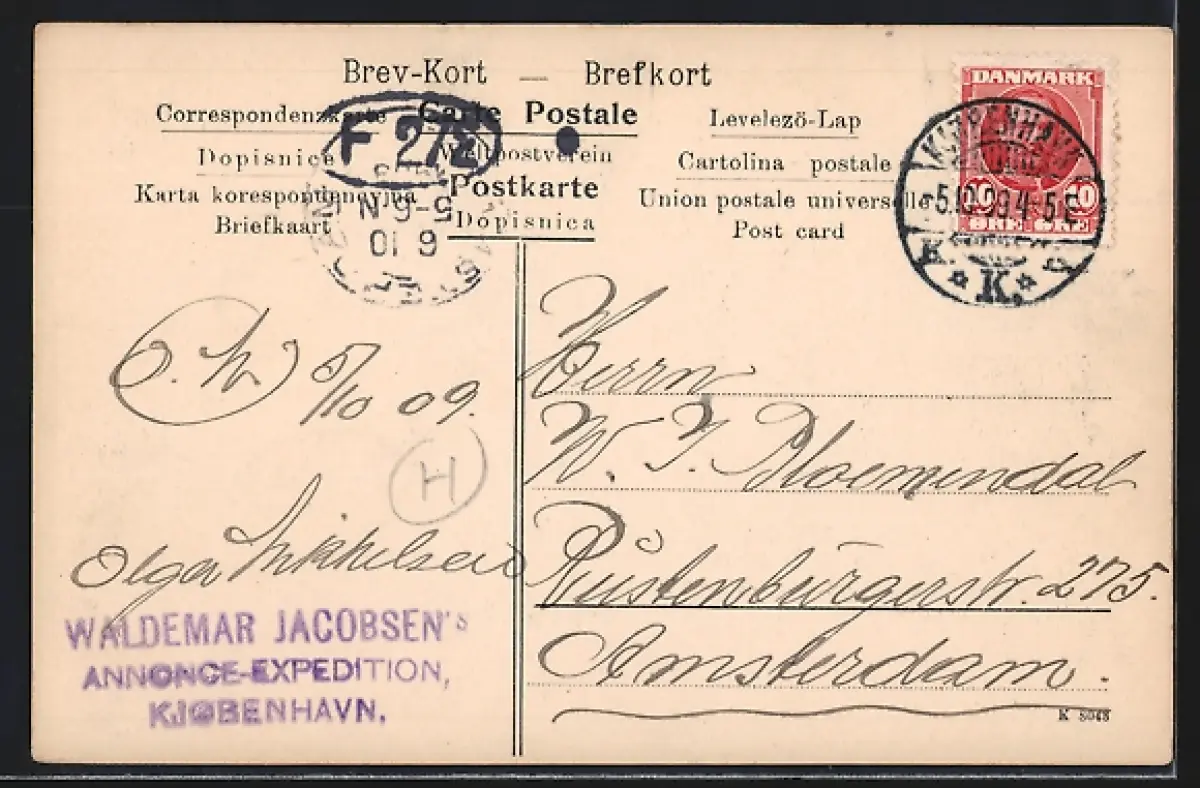 Brev-Kort — Brefkort
Correspondenzkarte Carte Postale Levelező-Lap
Dopisnice Weltpostverein Cartolina postale
Karta korespondencyjna Postkarte Union postale universelle
Briefkaart Dopisnica Post card
F 272
5-6 N
6 10
DANMARK
10 10
ØRE ØRE
KJØBENHAVN
5.10.09.4-5 E
* K. *
5/10 09.
H
Olga Mikkelsen
WALDEMAR JACOBSEN's
ANNONCE-EXPEDITION,
KJØBENHAVN.
Herrn
W. J. Bloemendal
Rustenburgerstr. 275.
Amsterdam.
K 8048